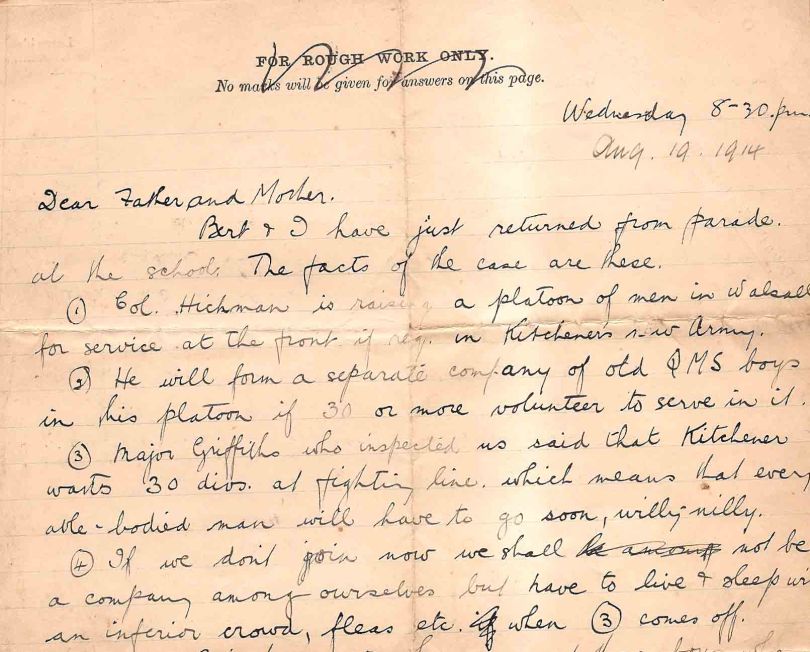 FOR ROUGH WORK ONLY.
No marks will be given for answers on this page.
Wednesday 8-30.pm
Aug. 19. 1914
Dear Father and Mother.
Bert & I have just returned from parade.
at the school. The facts of the case are these.
① Col. Hickman is raising a platoon of men in Walsall
for service at the front if req. in Kitcheners new Army.
② He will form a separate company of old QMS boys
in his platoon if 30 or more volunteer to serve in it.
③ Major Griffiths who inspected us said that Kitchener
wants 30 divs. at fighting line. which means that every
able-bodied man will have to go soon, willy-nilly.
④ If we don't join now we shall be among not be
a company among ourselves but have to live & sleep wi
an inferior crowd, fleas etc. if when ③ comes off.